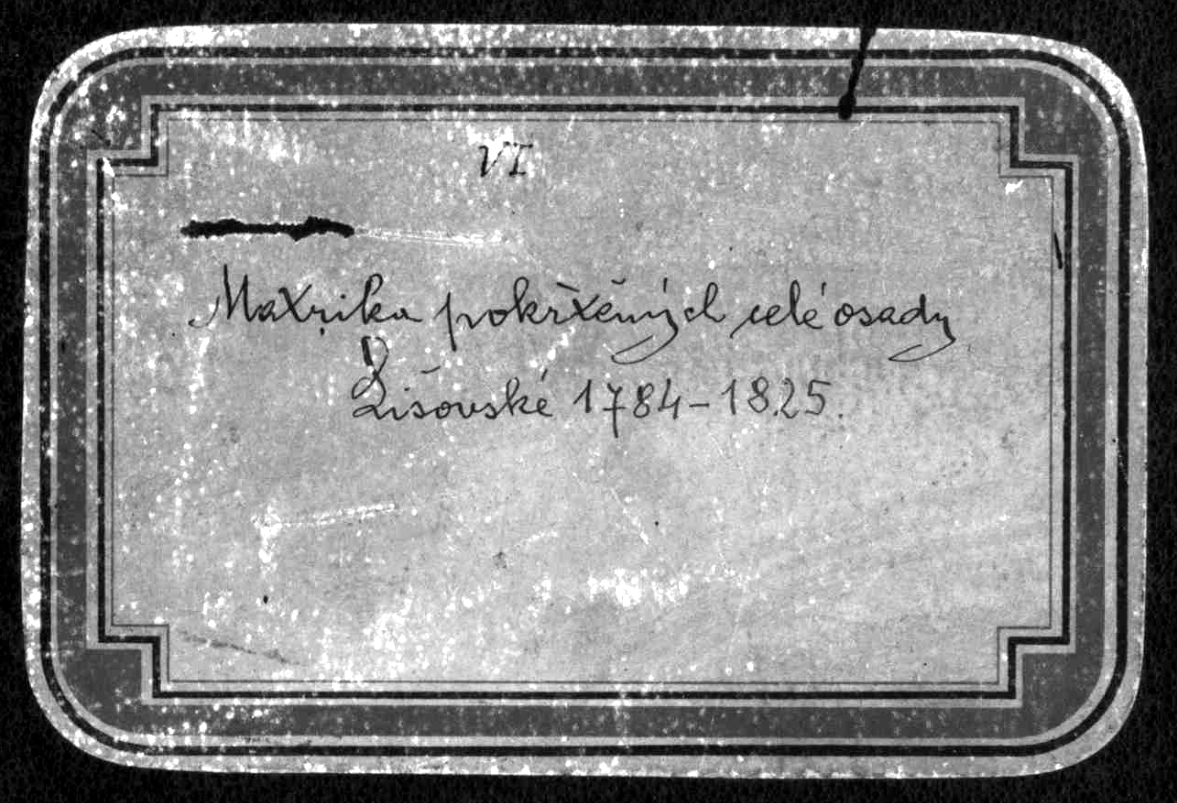 VI
Matrika pokřtěných celé osady
Lišovské 1784-1825.